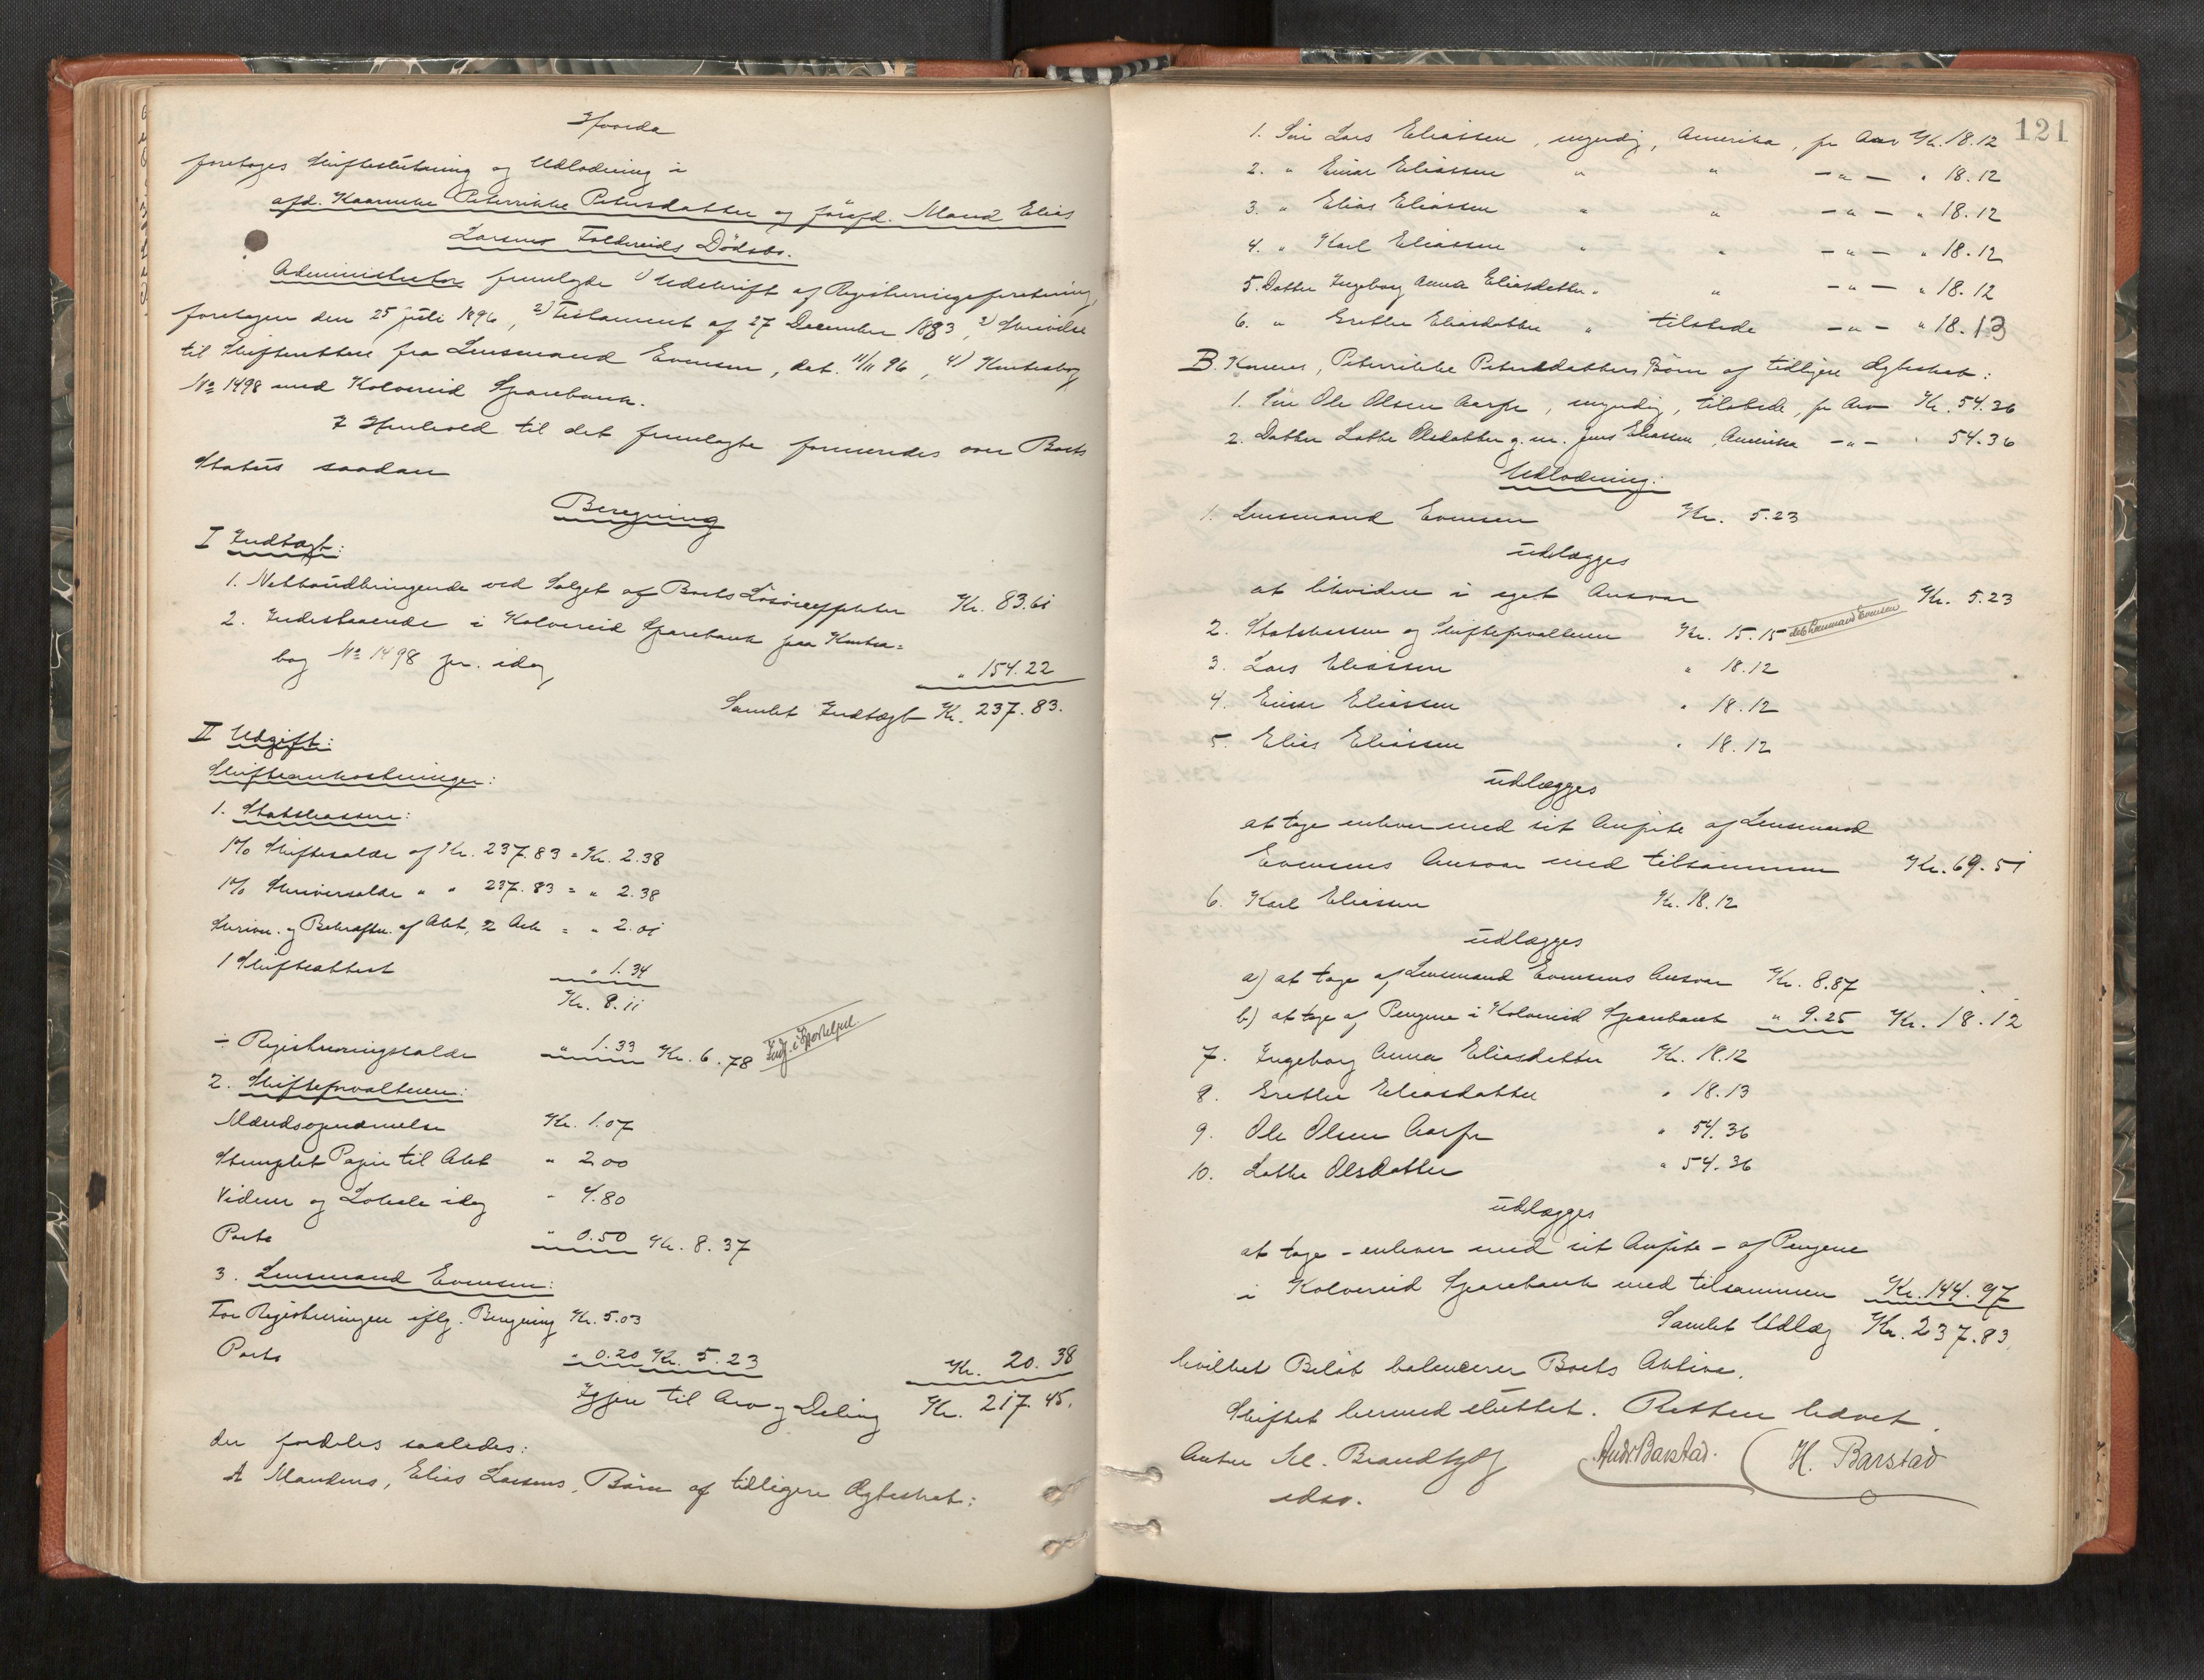 Hvorda
foretages Skifteslutning og Udlodning i
afd. Kaarenke Peterrikke Petersdatter ogførafd. Mand Elias
Larsens Foldereids Dødsbo.
Administrator fremlagde 1) Udskrift af Registreringsforretning,
foretagen den 25 juli 1896, 2) Testament af 27 December 1883, 3) Skrivelse
til Skifteretten fra Lensmand Evensen, dat. 11/11 96, 4) Kontrabog
No 1498 med Kolvereid Sparebank.
I Henhold til det fremlagte formeredes over Boets
Status saadan
Beregning
I Indtægt:
1. Nettoudbringende ved Salget af Boets Løsøreeffekter Kr. 83.61
2. Indestaaende i Kolvereid Sparebank paa Kontra=
bog No 1498 pr. idag " 154.22
Samlet Indtægt Kr. 237.83.
II Udgift:
Skifteomkostninger:
1. Statskassen:
1% Skiftesalær af Kr. 237.83 = Kr. 2.38
1% Skriversalær " " 237.83 = " 2.38
Skrivn. og Bekræftn. af Akt, 2 Ark = " 2.01
1 Skifteattest " 1.34
Kr. 8.11
÷ Registreringssalær " 1.33 Kr. 6.78 Indf. i Sporteljnl.
2. Skifteforvalteren:
Mændsopnævnelse Kr. 1.07
Stemplet Papir til Akt " 2.00
Vidner og Lokale idag " 4.80
Porto " 0.50 Kr. 8.37
3. Lensmand Evensen:
For Registreringen iflg. Beregning Kr. 5.03
Porto " 0.20 Kr. 5.23 Kr. 20.38
Igjen til Arv og Deling Kr. 217.45.
der fordeles saaledes:
A Mandens, Elias Larsens, Børn af tidligere Ægteskab:
121
1. Søn Lars Eliassen, myndig, Amerika, for Arv Kr. 18.12
2. " Einar Eliassen " " — " — " 18.12
3. " Elias Eliassen " " — " — " 18.12
4. " Karl Eliassen " " — " — " 18.12
5. Datter Ingeborg Anna Eliasdatter " " — " — " 18.12
6. " Grethe Eliasdatter " tilstede — " — " 18.13
B. Konens, Peterrikke Petersdatters Børn af tidligere Ægteskab:
1. Søn Ole Olsen Aarfor, myndig, tilstede, for Arv Kr. 54.36
2. Datter Lotte Olsdatter g. m. Jens Eliassen, Amerika — " — " 54.36
Udlodning:
1. Lensmand Evensen Kr. 5.23
udlægges
at likvidere i eget Ansvar Kr. 5.23
2. Statskassen og Skifteforvalteren Kr. 15.15 deb. Lensmand Evensen
3. Lars Eliassen " 18.12
4. Einar Eliassen " 18.12
5. Elias Eliassen " 18.12
udlægges
at tage enhver med sit Anpite af Lensmand
Evensens Ansvar med tilsammen Kr. 69.51
6. Karl Eliassen Kr. 18.12
udlægges
a) at tage af Lensmand Evensens Ansvar Kr. 8.87
b) at tage af Pengene i Kolvereid Sparebank " 9.25 Kr. 18.12
7. Ingeborg Anna Eliasdatter Kr. 18.12
8. Grethe Eliasdatter " 18.13
9. Ole Olsen Aarfor " 54.36
10. Lotte Olsdatter " 54.36
udlægges
at tage – enhver med sit Anpite – af Pengene
i Kolvereid Sparebank med tilsammen Kr. 144.97
Samlet Udlæg Kr. 237.83,
hvilket Beløb balancerer Boets Aktiva.
Skiftet hermed sluttet. Retten hævet.
Anton Kl. Brandtzæg Andr. Barstad. H. Barstad
edsv.